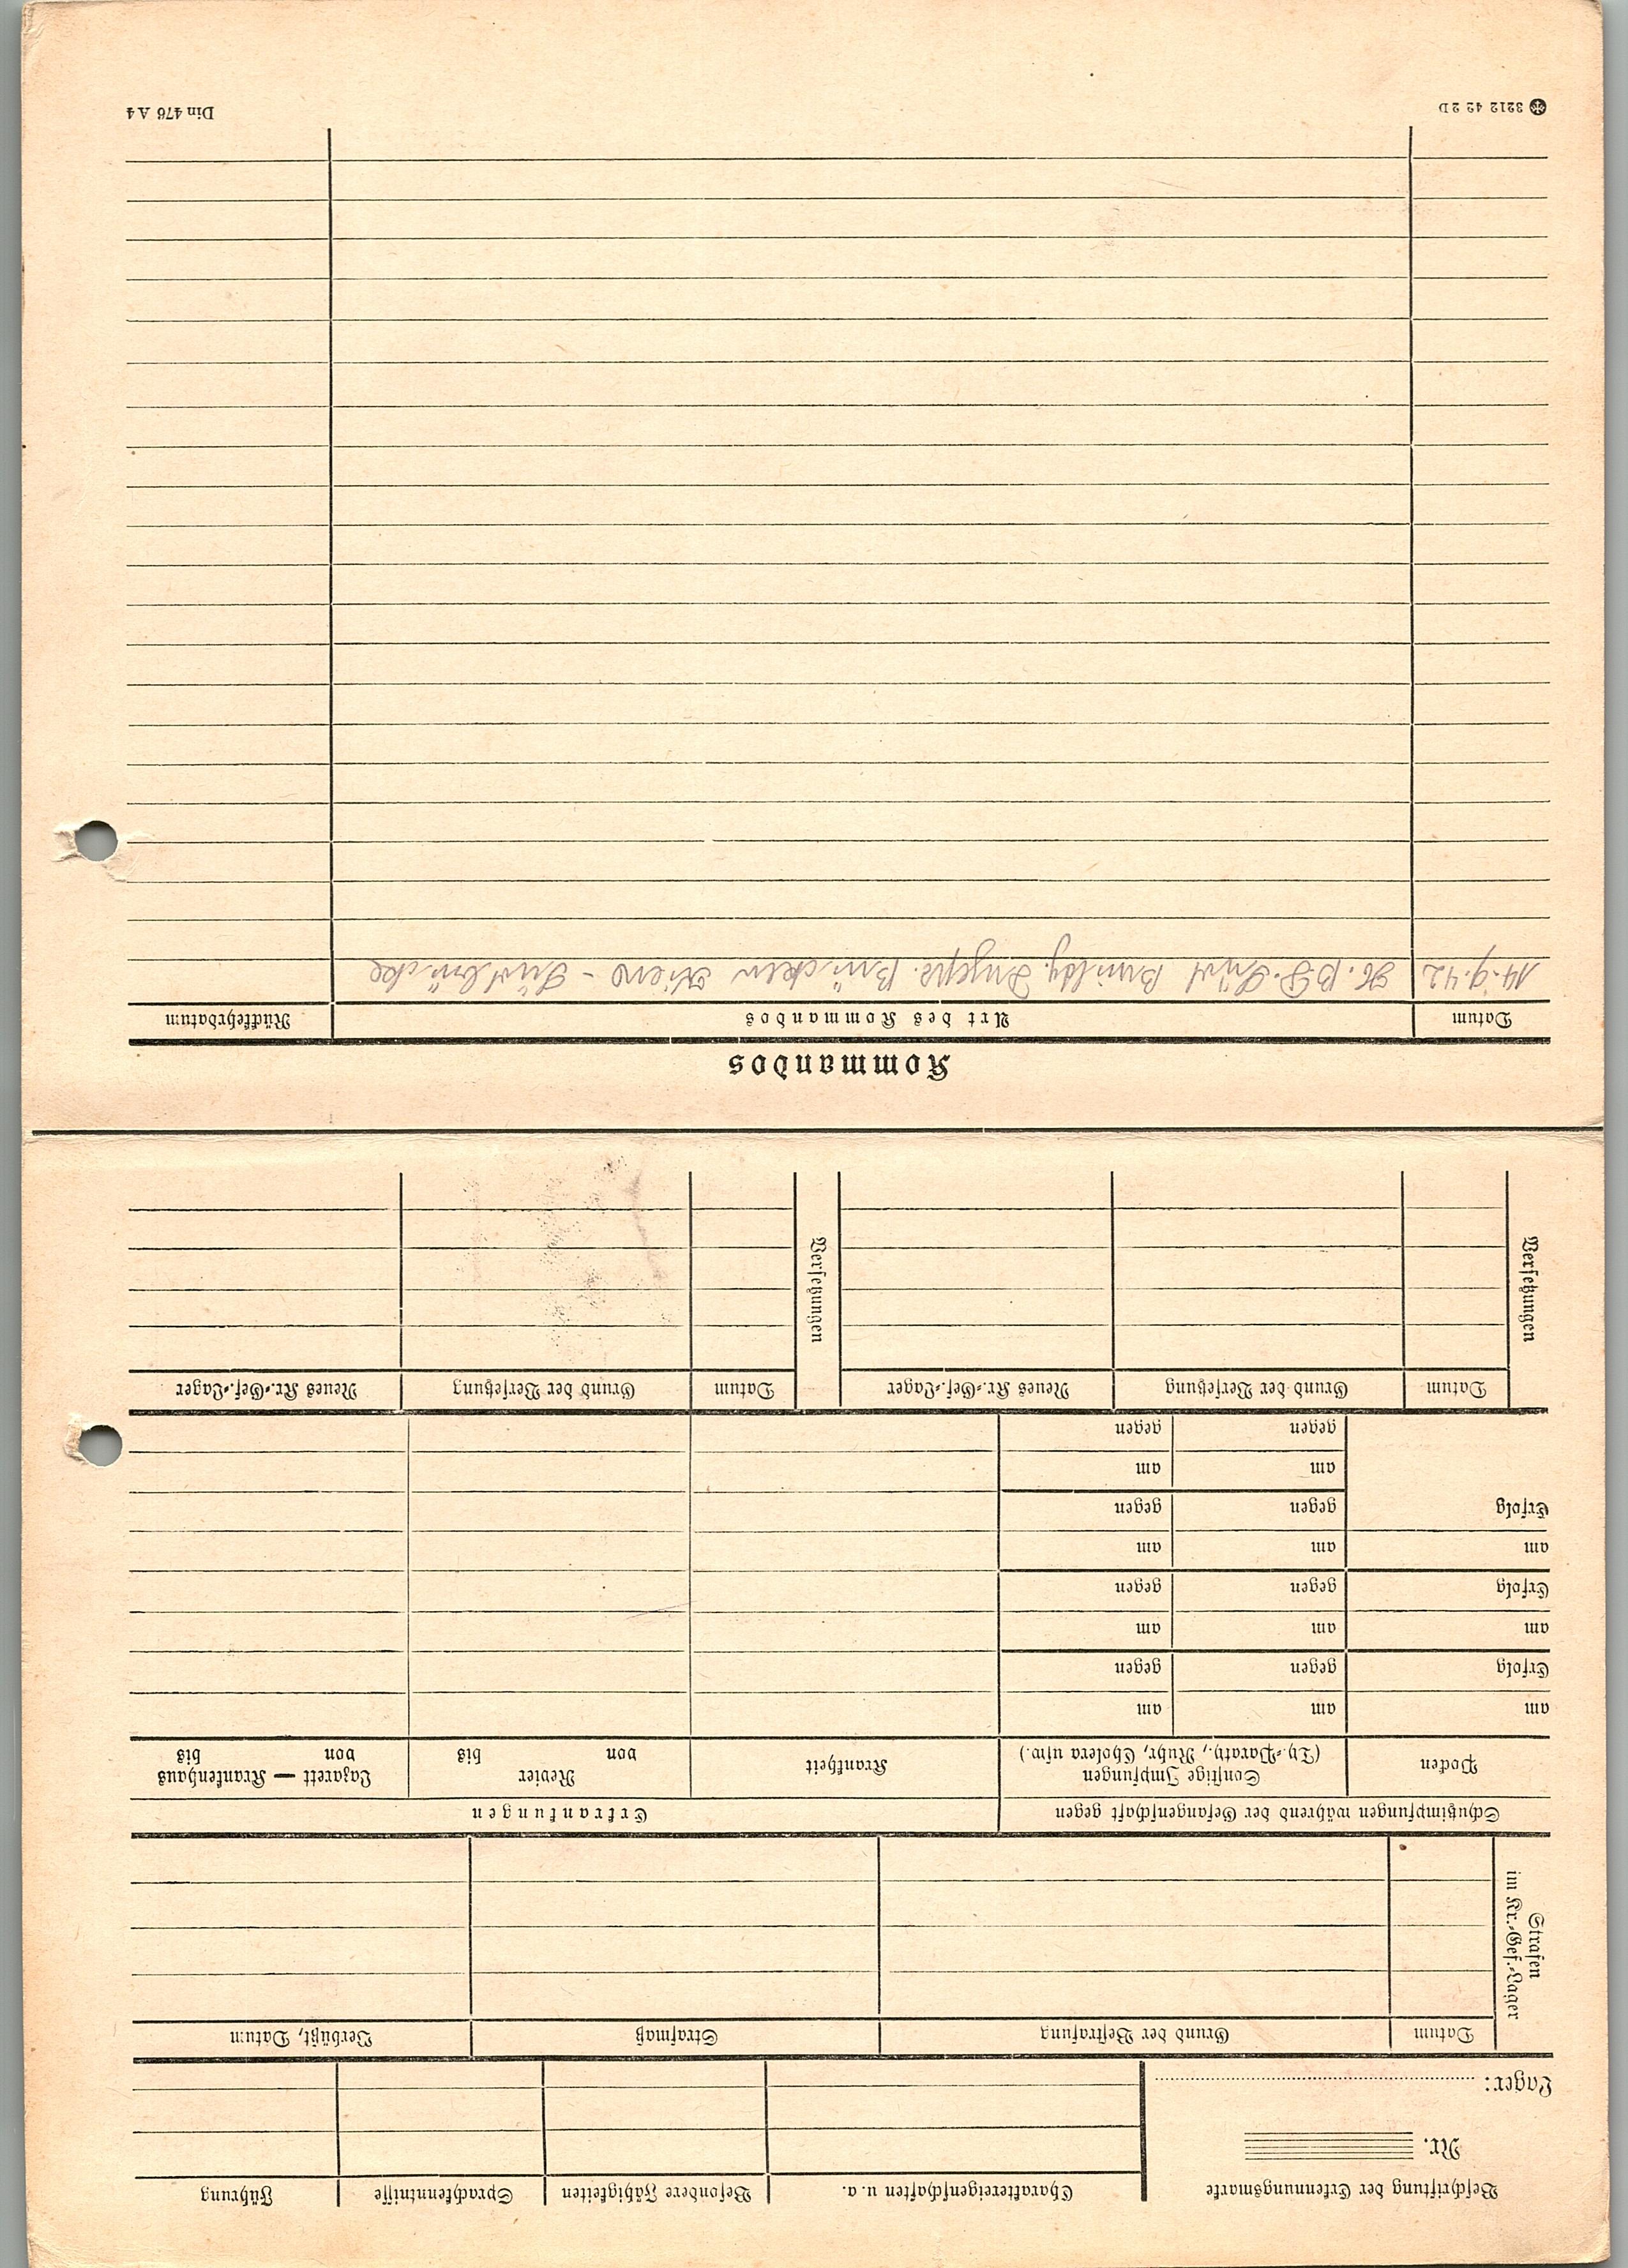 Beschriftung der Erkennungsmarke
Nr.
Lager:
Charaktereigenschaften u. a.
Besondere Fähigkeiten
Sprachkenntnisse
Führung
Strafen
im Kr.-Gef.-Lager
Datum
Grund der Bestrafung
Strafmaß
Verbüßt, Datum
Schutzimpfungen während der Gefangenschaft gegen
Erkrankungen
Pocken
Sonstige Impfungen
(Ty.-Paraty., Ruhr, Cholera usw.)
Krankheit
Revier
von bis
Lazarett — Krankenhaus
von bis
am am am
Erfolg gegen gegen
am am am
Erfolg gegen gegen
am am am
Erfolg gegen gegen
am am
gegen gegen
Versetzungen
Datum
Grund der Versetzung
Neues Kr.-Gef.-Lager
Versetzungen
Datum
Grund der Versetzung
Neues Kr.-Gef.-Lager
Kommandos
Datum
Art des Kommandos
Rückkehrdatum
14.9.42 Brücken Kiew - Südbrücke
3212 42 2 D
Din 476 A 4